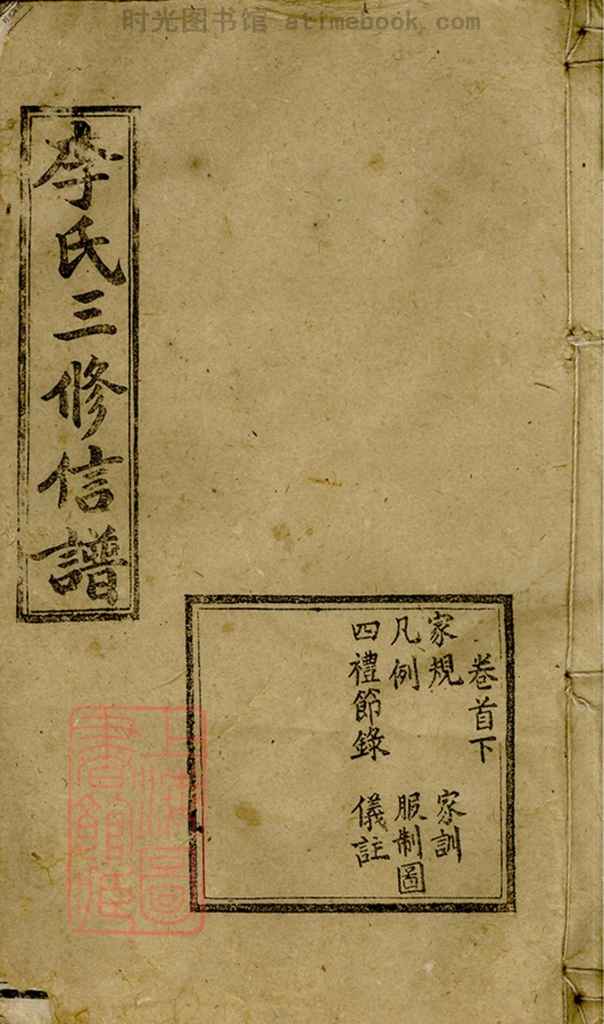 时光图书馆 atimebook.com
李氏三修信譜
卷首下
家規 家訓
凡例 服制圖
四禮節錄 儀註
上海圖
書館藏